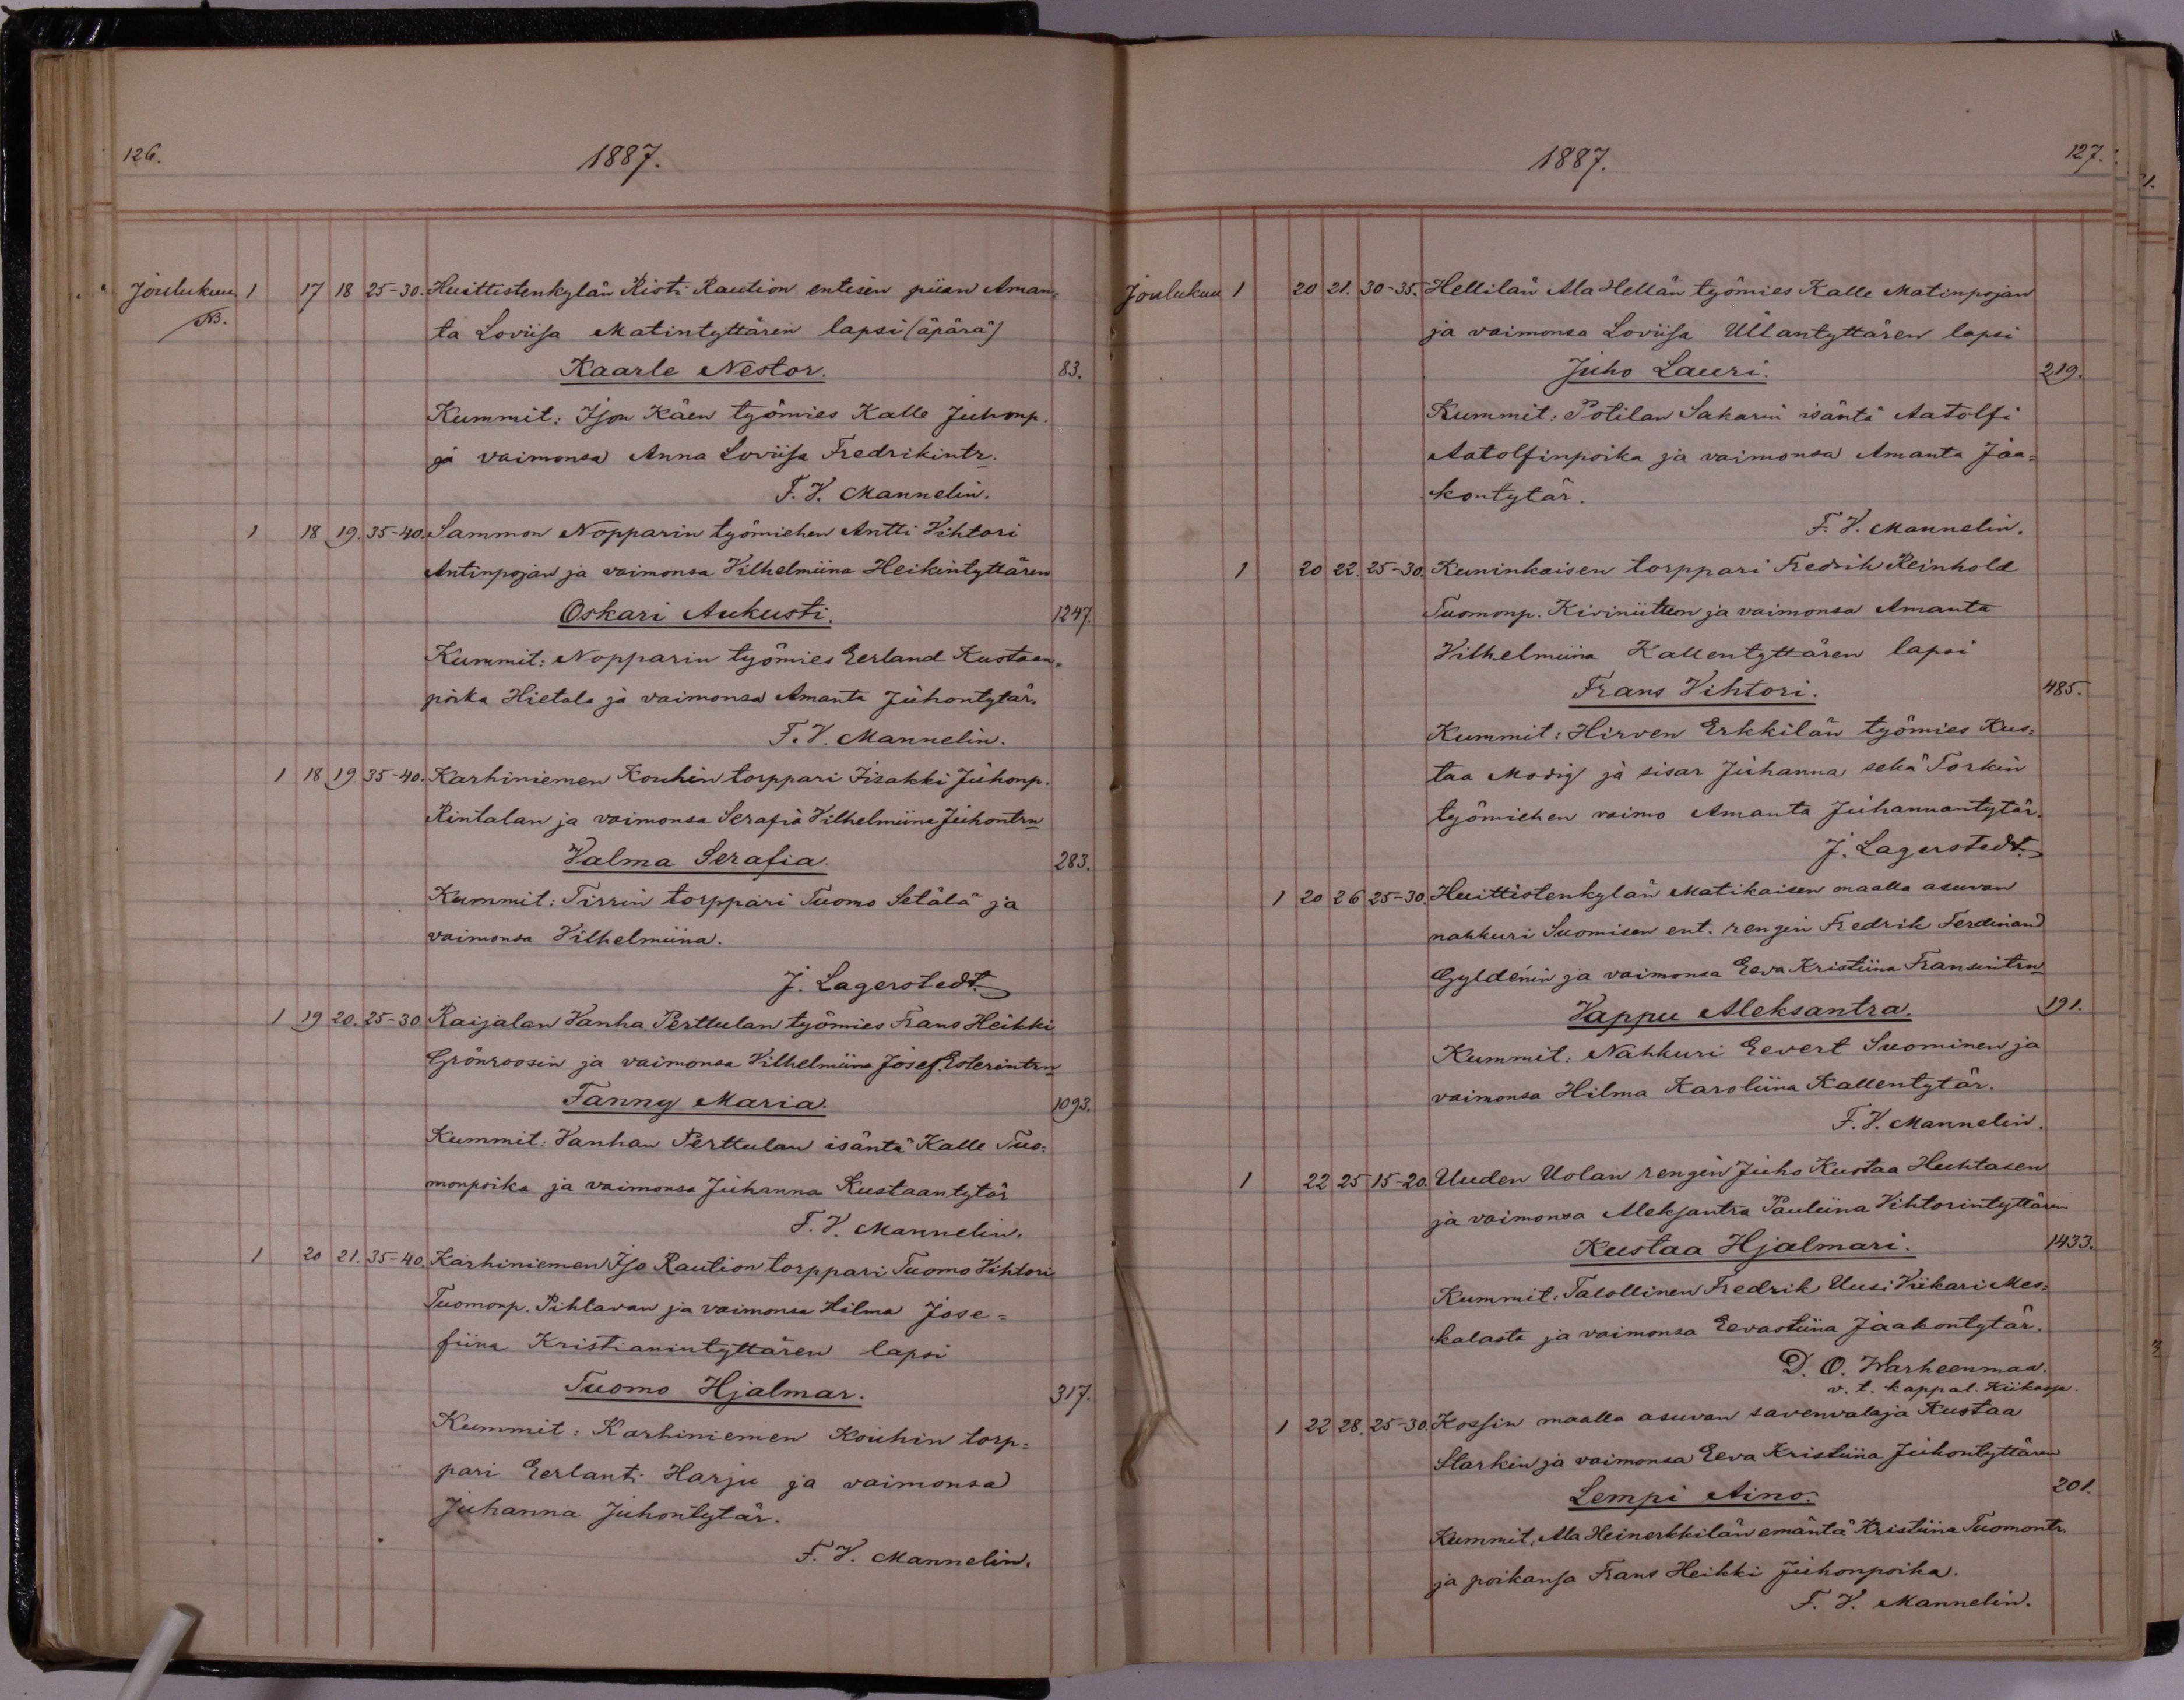 126.
1887.
Joulukuu 1 17 18 25-30. Huittistenkylän Risti Raution entisen piian Aman=
NB. ta Loviisa Matintyttären lapsi (äpärä)
Kaarle Nestor. 83.
Kummit: Ison Käen työmies Kalle Juhonp.
ja vaimonsa Anna Loviisa Fredrikintr.
F. V. Mannelin.
1 18 19. 35-40. Sammon Nopparin työmiehen Antti Vihtori
Antinpojan ja vaimonsa Vilhelmiina Heikintyttären
Oskari Aukusti. 1247.
Kummit: Nopparin työmies Eerland Kustaan=
poika Hietala ja vaimonsa Amanta Juhontytär.
F. V. Mannelin.
1 18 19. 35-40. Karhiniemen Kouhin torppari Iisakki Juhonp.
Rintalan ja vaimonsa Serafia Vilhelmiina Juhontrn
Valma Serafia. 283.
Kummit: Tirrin torppari Tuomo Setälä ja
vaimonsa Vilhelmiina.
J. Lagerstedt.
1 19 20. 25-30. Raijalan Vanha Perttulan työmies Frans Heikki
Grönroosin ja vaimonsa Vilhelmiina Josef. Esterintrn
Fanny Maria. 1093.
Kummit: Vanhan Perttulan isäntä Kalle Tuo=
monpoika ja vaimonsa Juhanna Kustaantytär
F. V. Mannelin.
1 20 21. 35-40. Karhiniemen Iso Raution torppari Tuomo Vihtori
Tuomonp. Pihlavan ja vaimonsa Hilma Jose=
fiina Kristianintyttären lapsi
Tuomo Hjalmar. 317.
Kummit: Karhiniemen Kouhin torp=
pari Eerlanti Harju ja vaimonsa
Juhanna Juhontytär.
F. V. Mannelin.
1887.
127.
Joulukuu 1 20 21. 30-35. Hellilän Ala Hellän työmies Kalle Matinpojan
ja vaimonsa Loviisa Ullantyttären lapsi
Juho Lauri. 219.
Kummit: Potilan Sakarin isäntä Aatolfi
Aatolfinpoika ja vaimonsa Amanta Jaa=
kontytär.
F. V. Mannelin.
1 20 22. 25-30. Kuninkaisen torppari Fredrik Reinhold
Tuomonp. Kiviniitun ja vaimonsa Amanta
Vilhelmiina Kallentyttären lapsi
Frans Vihtori. 485.
Kummit: Hirven Erkkilän työmies Kus=
taa Modig ja sisar Juhanna sekä Torkin
työmiehen vaimo Amanta Juhannantytär.
J. Lagerstedt.
1 20 26 25-30. Huittistenkylän Matikaisen maalla asuvan
nahkuri Suomisen ent. rengin Fredrik Ferdinand
Gyldénin ja vaimonsa Eeva Kristiina Fransintrn
Vappu Aleksantra. 191.
Kummit: Nahkuri Eevert Suominen ja
vaimonsa Hilma Karoliina Kallentytär.
F. V. Mannelin.
1 22 25 15-20. Uuden Uolan rengin Juho Kustaa Huhtasen
ja vaimonsa Aleksantra Pauliina Vihtorintyttären
Kustaa Hjalmari. 1433.
Kummit: Talollinen Fredrik Uusi Viikari Mes=
kalasta ja vaimonsa Eevastiina Jaakontytär.
D. O. Warheenmaa.
v. t. kappal. Kiikassa.
1 22 28. 25-30. Kossin maalla asuvan savenvalaja Kustaa
Starkin ja vaimonsa Eeva Kristiina Juhontyttären
Lempi Aino. 201.
Kummit, Ala Heinerkkilän emäntä Kristiina Tuomontr.
ja poikansa Frans Heikki Juhonpoika.
F. V. Mannelin.